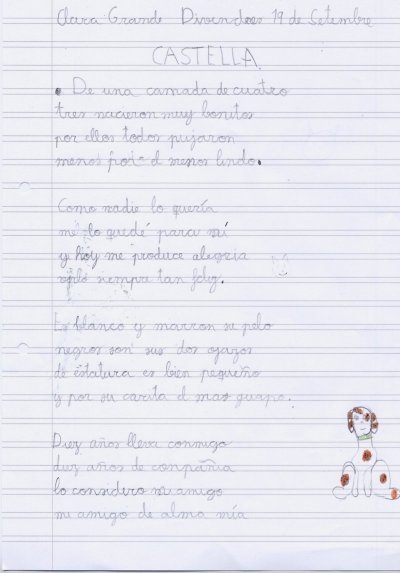 Clara Grande Divendres 19 de Setembre
CASTELLA
• De una camada de cuatro
tres nacieron muy bonitos
por ellos todos pujaron
menos por el menos lindo.
Como nadie lo quería
me lo quedé para mí
y hoy me produce alegria
verlo siempre tan feliz.
Es blanco y marron su pelo
negros son sus dos ojazos
de estatura es bien pequeño
y por su carita el mas guapo.
Diez años lleva conmigo
diez años de compañia
lo considero mi amigo
mi amigo de alma mía